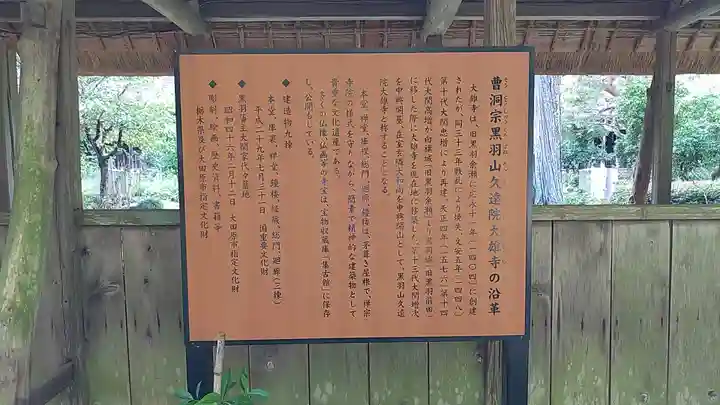 曹洞宗黒羽山久遠院大雄寺の沿革
大雄寺は、旧黒羽余瀬に応永十一年(一四〇四)に創建
されたが、同三十三年戦乱により焼失、文安五年(一四四八)
第十代大関忠増により再建、天正四年(一五七六)第十四
代大関高増が白旗城(旧黒羽余瀬)より黒羽城(旧黒羽前田)
に移した際に大雄寺を現在地に移築した。第十三代大関増次
を中興開基、在室玄隣大和尚を中興開山として、黒羽山久遠
院大雄寺と称することになる。
本堂、禅堂、庫裡、総門、廻廊、鐘楼は、茅葺き屋根で、禅宗
寺院の様式を守りながら、簡素で精神的な建築物として
貴重な文化遺産である。
多くの仏像、仏画等の寺宝は、宝物収蔵庫「集古館」に保存
し、公開もしている。
◆ 建造物九棟
本堂、庫裏、禅堂、鐘楼、経蔵、総門、廻廊(三棟)
平成二十九年七月三十一日 国重要文化財
◆ 黒羽藩主大関家代々墓地
昭和四十六年二月十二日 大田原市指定文化財
◆ 彫刻、絵画、歴史資料、書籍等
栃木県及び大田原市指定文化財